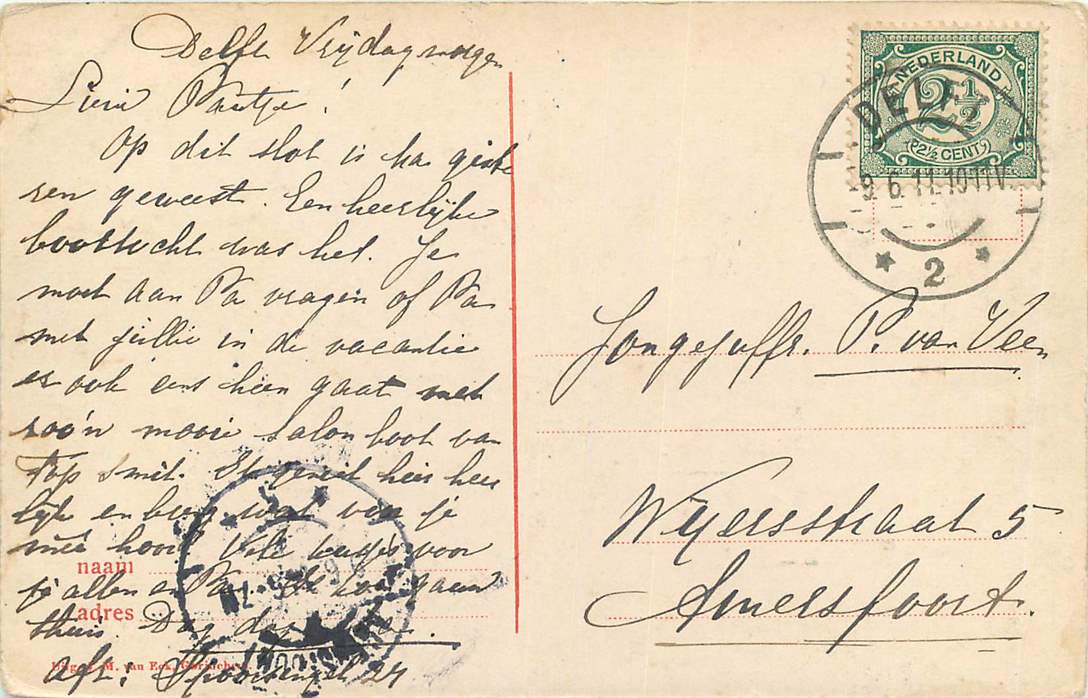 Delft Vrijdagmorgen
Lieve Pautje!
Op dit slot is ma giste
ren geweest. Een heerlijke
boottocht was het. Je
moet aan Pa vragen of Pa
met jullie in de vacantie
er ook eens heen gaat met
zoo'n mooie salonboot van
Fop Smit. Ik geniet hier heer
lijk en breng wat voor je
meê hoor. Vele kusjes voor
je allen en Pa
thuis. Dag
afz: 24
naam
adres
NEDERLAND
2 1/2
(2½ CENT)
DELFT
9.6.11.10-11V.
* 2 *
Jongejuffr. P. van Veen
Wijersstraat 5
Amersfoort.